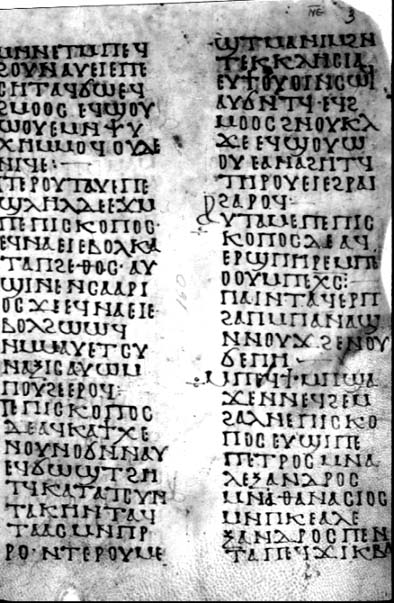 ⲛⲉ 3
ⲙⲛⲛⲉⲧⲙⲡⲉϥ
ϩⲟⲩⲛⲁⲩⲉⲓⲉⲡⲉ
ⲥⲏⲧⲁϥϭⲱⲉϥ
ϩⲙⲟⲟⲥ ⲉϥϣⲟⲩ
ϣⲟⲩⲉⲙⲛⲯⲩ
ⲭⲏⲙⲙⲟϥⲟⲩⲇⲉ
ⲛⲓϥⲉ:
ⲛⲧⲉⲣⲟⲩⲧⲁⲩⲉⲡⲉ
ϣⲗⲏⲗⲇⲉⲉϫⲙ
ⲡⲉⲡⲓⲥⲕⲟⲡⲟⲥ·
ⲉϥⲛⲁⲉⲓⲉⲃⲟⲗⲕⲁ
ⲧⲁⲡϩⲉⲑⲟⲥ·ⲁⲩ
ϣⲓⲛⲉⲛⲥⲁⲁⲣⲓ
ⲟⲥϫⲉⲉϥⲛⲁⲉⲓⲉ
ⲃⲟⲗϩⲱⲱϥ
ⲛⲙⲙⲁⲩⲉⲧⲥⲩ
ⲛⲁⲝⲓⲥⲁⲩⲱⲙ
ⲡⲟⲩϩⲉⲉⲣⲟϥ:
ⲡⲉⲡⲓⲥⲕⲟⲡⲟⲥ
ⲇⲉⲁϥⲕⲁⲧⲭⲉ
ⲛⲟⲩⲛⲟϭⲛⲛⲁⲩ
ⲉϥϭⲱϣⲧϩⲏ
ⲧϥⲕⲁⲧⲁⲡⲥⲩⲛ
ⲧⲁⲕⲏⲛⲧⲁϥ
ⲧⲁⲁⲥⲙⲛⲡⲣ
ⲣⲟ·ⲛⲧⲉⲣⲟⲩⲙⲉ
ϣⲧⲙⲁⲛⲓⲙϩⲛ
ⲧⲉⲕⲕⲗⲏⲥⲓⲁ
ⲉⲩϯⲟⲩⲟⲓⲛⲥⲱϥ
ⲁⲩϭⲛⲧϥ·ⲉϥϩ
ⲙⲟⲟⲥϩⲛⲟⲩⲕⲗ
ϫⲉⲉϥϣⲟⲩϣ
ⲟⲩⲉⲁⲛⲁϩⲏⲧϥ
ⲧⲏⲣⲟⲩⲉⲓⲉϩⲣⲁⲓ
ϩⲁⲣⲟϥ:
ⲁⲩⲧⲁⲙⲉⲡⲉⲡⲓⲥ
ⲕⲟⲡⲟⲥⲇⲉⲁϥ
ⲉⲣϣⲡⲏⲣⲉⲙⲡⲉ
ⲟⲟⲩⲙⲡⲉⲭ̅ⲥ̅:
ⲡⲁⲓⲛⲧⲁϥⲉⲣⲡ
ϩⲁⲡⲙⲡⲁⲛⲁϣ
ⲛⲛⲟⲩϫ·ϩⲉⲛⲟⲩ
ϭⲉⲡⲏ·
ⲙⲡⲉϥϯⲙⲡϣⲁ
ϫⲉⲛⲛⲉϥϩⲉⲙ
ϩⲁⲗⲛⲉⲡⲓⲥⲕⲟ
ⲡⲟⲥⲉⲩϣⲓⲡⲉ
ⲡⲉⲧⲣⲟⲥⲙⲛⲁ
ⲗⲉⲝⲁⲛⲇⲣⲟⲥ
ⲙⲛⲁⲑⲁⲛⲁⲥⲓⲟⲥ
ⲙⲛⲡⲕⲉⲁⲗⲉ
ⲝⲁⲛⲇⲣⲟⲥⲡⲉⲛ
ⲧⲁⲡⲉϥϫⲓⲕⲃⲁ